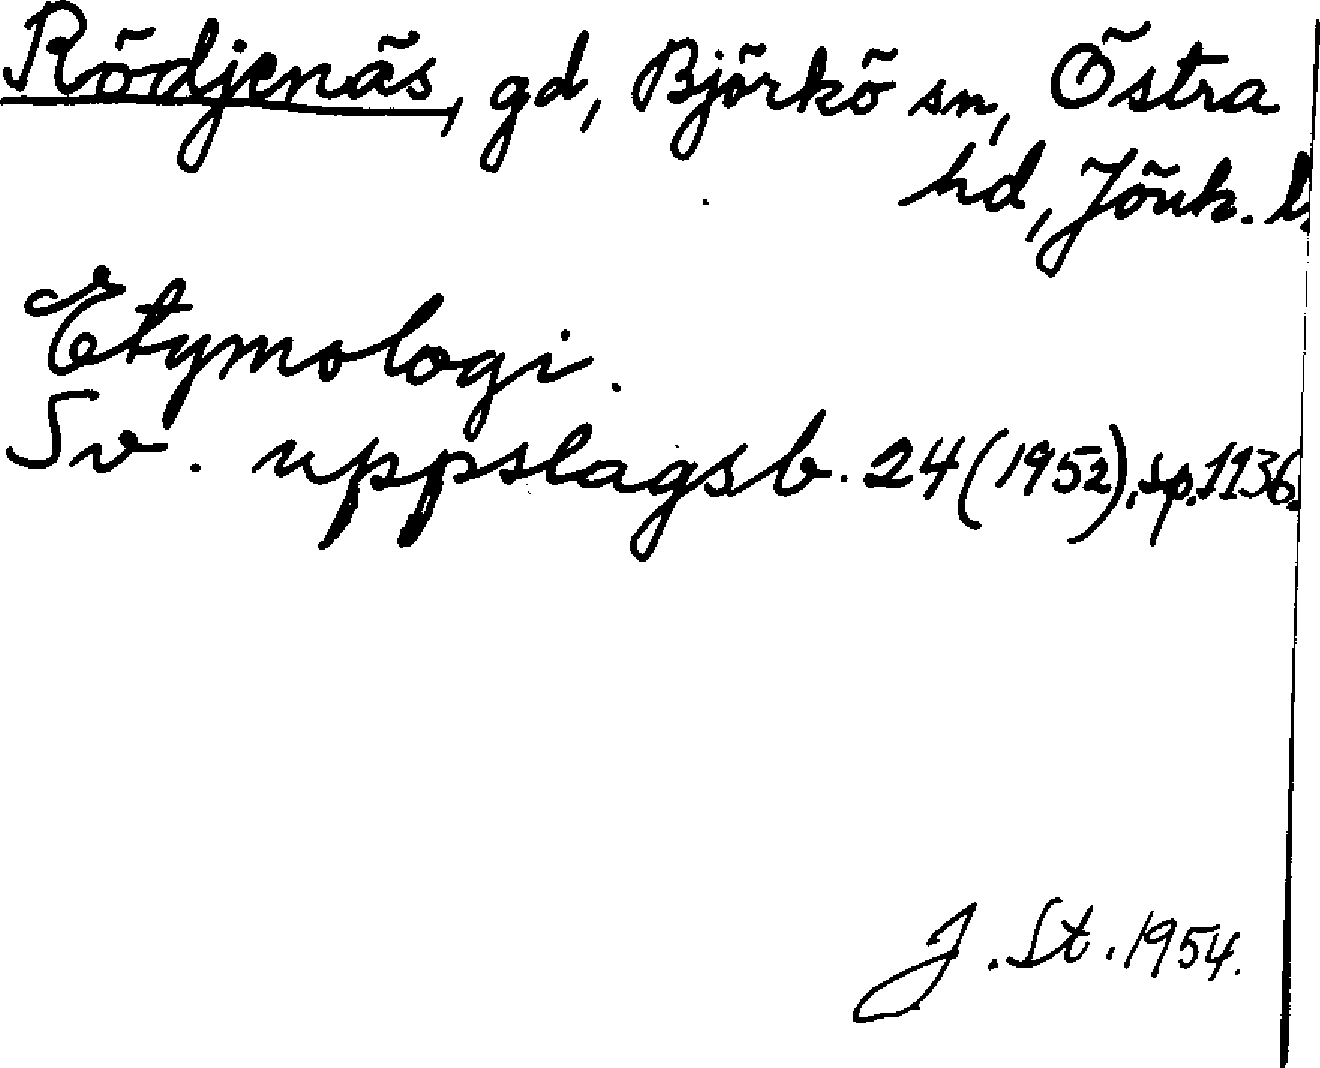 Rödjenäs, gd, Björkö sn, Östra
hd, Jönk. l.
Etymologi.
Sv. uppslagsb. 24 (1952), sp. 1136.
J. St. 1954.